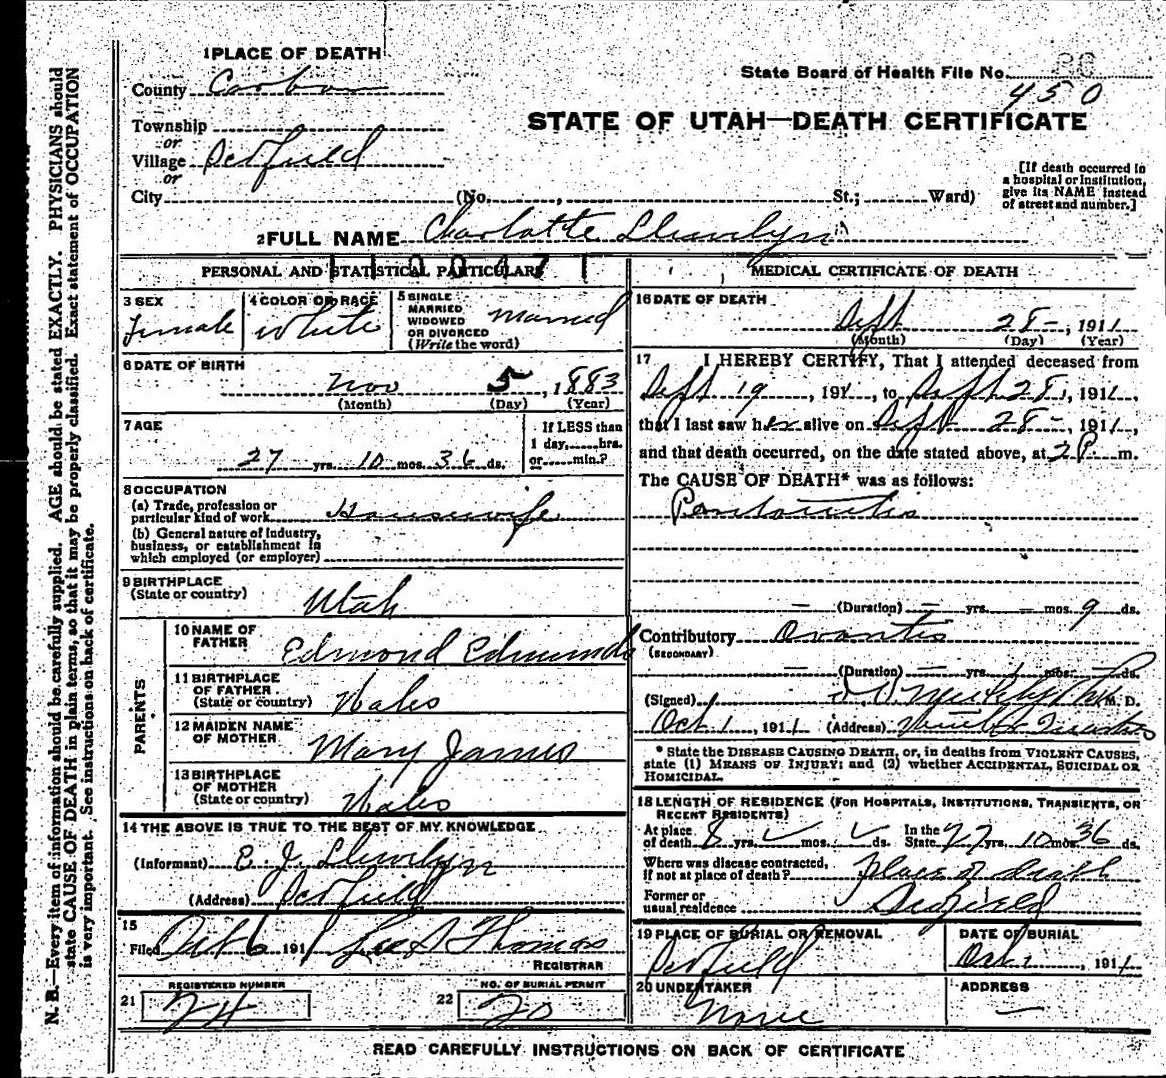 N. B.—Every item of information should be carefully supplied. AGE should be stated EXACTLY. PHYSICIANS should
state CAUSE OF DEATH in plain terms, so that it may be properly classified. Exact statement of OCCUPATION
is very important. See instructions on back of certificate.
1 PLACE OF DEATH
County Carbon
Township
or
Village
or
City (No. , St.; Ward)
State Board of Health File No.
450
STATE OF UTAH—DEATH CERTIFICATE
[If death occurred in
a hospital or institution,
give its NAME instead
of street and number.]
2 FULL NAME Charlotte Llewelyn
PERSONAL AND STATISTICAL PARTICULARS
3 SEX
Female
4 COLOR OR RACE
White
5 SINGLE
MARRIED
WIDOWED
OR DIVORCED
(Write the word)
Married
6 DATE OF BIRTH
Nov 5, 1883
(Month) (Day) (Year)
7 AGE
27 yrs. 10 mos. 36 ds.
If LESS than
1 day, hrs.
or min.?
8 OCCUPATION
(a) Trade, profession or
particular kind of work Housewife
(b) General nature of industry,
business, or establishment in
which employed (or employer)
9 BIRTHPLACE
(State or country)
Utah
PARENTS
10 NAME OF
FATHER
Edmond Edmunds
11 BIRTHPLACE
OF FATHER
(State or country)
Wales
12 MAIDEN NAME
OF MOTHER
Mary James
13 BIRTHPLACE
OF MOTHER
(State or country)
Wales
14 THE ABOVE IS TRUE TO THE BEST OF MY KNOWLEDGE
(Informant) E. J. Llewelyn
(Address)
15
Filed Oct 6 1911 Thomas
REGISTRAR
REGISTERED NUMBER
21 24
NO. OF BURIAL PERMIT
22 20
MEDICAL CERTIFICATE OF DEATH
16 DATE OF DEATH
Sept 28—, 1911
(Month) (Day) (Year)
17 I HEREBY CERTIFY, That I attended deceased from
Sept 19, 191, to Sept 28, 1911,
that I last saw her alive on Sept 28—, 1911,
and that death occurred, on the date stated above, at 2 P. m.
The CAUSE OF DEATH* was as follows:
— (Duration) — yrs. — mos. 9 ds.
Contributory
(SECONDARY)
— (Duration) — yrs. 1 mos. — ds.
(Signed) M. D.
Oct 1, 1911 (Address)
* State the DISEASE CAUSING DEATH, or, in deaths from VIOLENT CAUSES,
state (1) MEANS OF INJURY; and (2) whether ACCIDENTAL, SUICIDAL OR
HOMICIDAL.
18 LENGTH OF RESIDENCE (FOR HOSPITALS, INSTITUTIONS, TRANSIENTS, OR
RECENT RESIDENTS)
At place
of death 8 yrs. mos. ds. In the
State 27 yrs. 10 mos. 36 ds.
Where was disease contracted,
if not at place of death? Place of death
Former or
usual residence
19 PLACE OF BURIAL OR REMOVAL
DATE OF BURIAL
Oct 1, 1911
20 UNDERTAKER
None
ADDRESS
—
READ CAREFULLY INSTRUCTIONS ON BACK OF CERTIFICATE